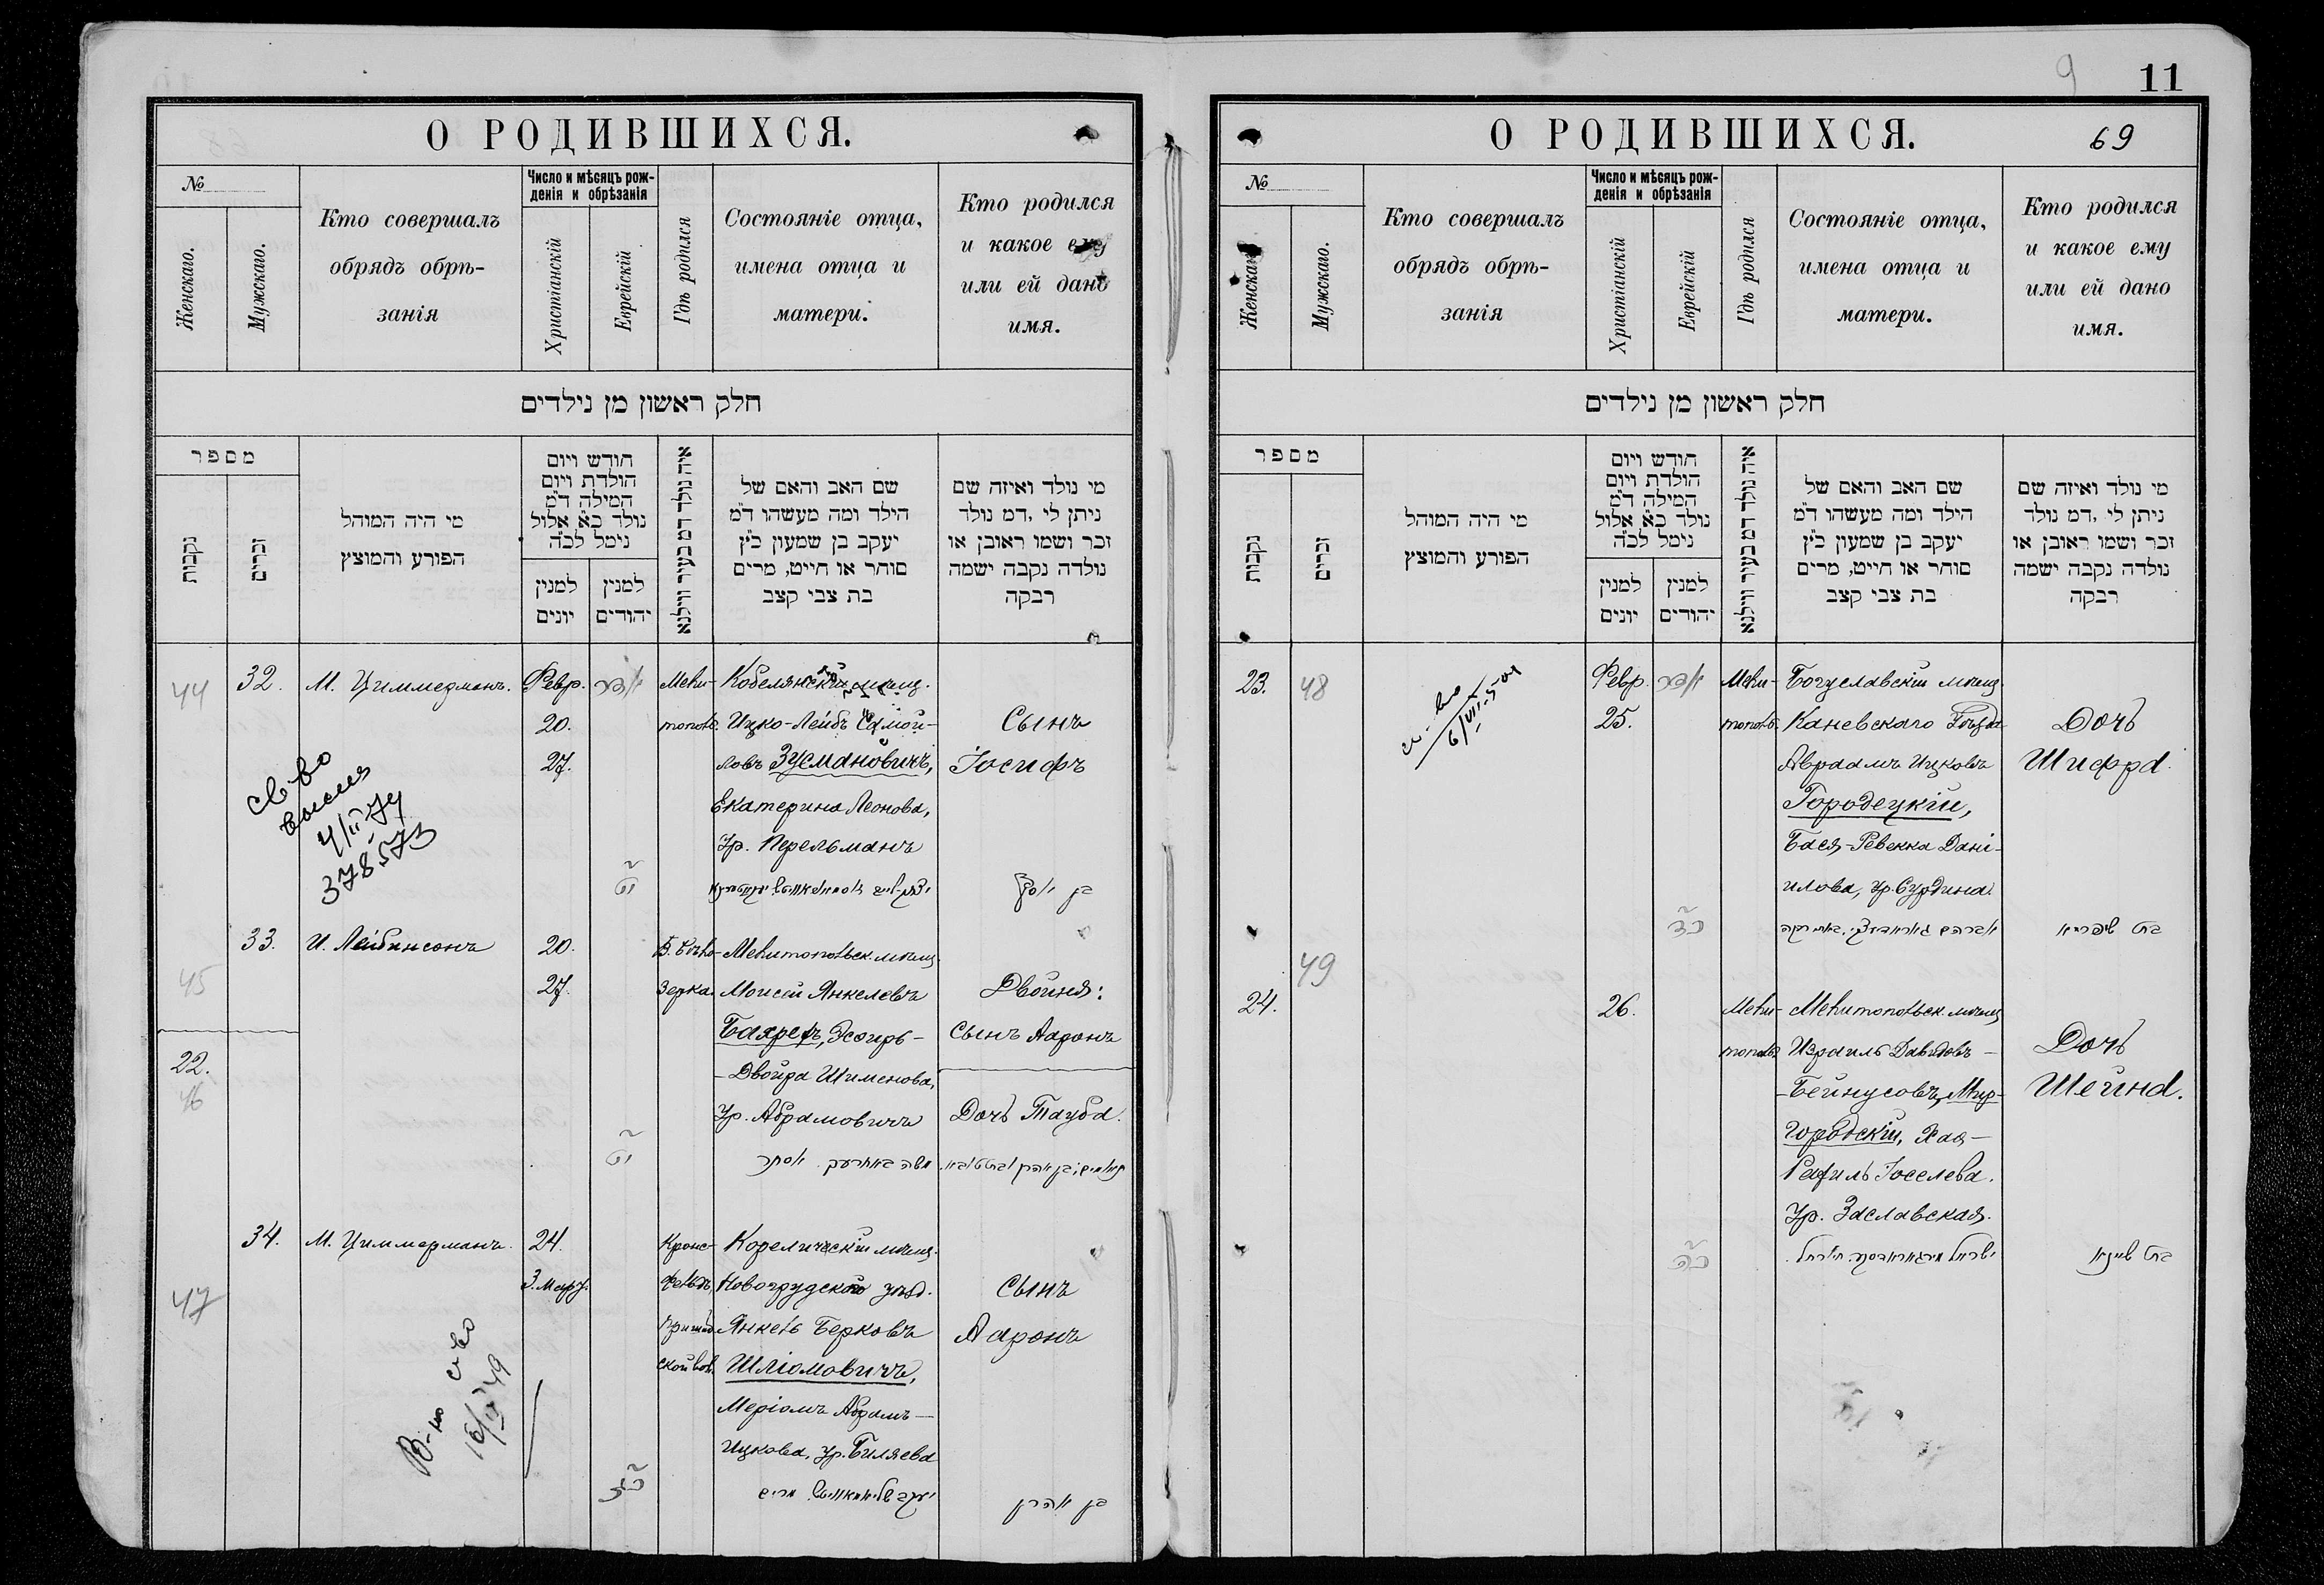 О РОДИВШИХСЯ.
№
Женскаго.
Мужскаго.
Кто совершалъ
обрядъ обрѣ-
занія
Число и мѣсяцъ рож-
денія и обрѣзанія
Христіанскій
Еврейскій
Гдѣ родился
Состояніе отца,
имена отца и
матери.
Кто родился
и какое ему
или ей дано
имя.
חלק ראשון מן נילדים
מספר
נקבות
זכרים
מי היה המוהל
הפורע והמוצץ
חודש ויום
הולדת ויום
המילה ד״מ
נולד כ״א אלול
נימל לכ״ה
למנין
יונים
למנין
יהודים
איה נולד דמ בעיר ווילנא
שם האב והאם של
הילד ומה מעשהו ד״מ
יעקב בן שמעון כ״ץ
סוחר או חייט, מרים
בת צבי קצב
מי נולד ואיזה שם
ניתן לי ,דמ נולד
זכר ושמו ראובן או
נולדה נקבה ישמה
רבקה
44
32.
М. Циммерманъ.
Февр.
20.
27.
Мели-
тополь.
Кобелянскій мѣщ.
Ицко-Лейбъ Самой-
ловъ Зусмановичъ,
Екатерина Леонова,
Ур. Перельманъ
Сынъ
Іосифъ
בן יוסף
св-во
4/II 74
378573
45
33.
И. Лейбинсонъ
20.
27.
Б. Бѣло-
зерка.
Мелитопольск. мѣщ.
Моисей Янкелевъ
Бахрехъ, Эсѳирь-
-Двойра Шименова,
Ур. Абрамовичъ
Двойня:
Сынъ Ааронъ
22.
46
Дочь Тауба.
34.
М. Циммерманъ.
24.
3. Март.
47
Кронс-
фельдъ,
Кореличскій мѣщ.
Новогрудскаго уѣзд.
Янкель Берковъ
Шліомовичъ,
Меріомъ Абрамъ-
Ицкова, ур. Биляева
Сынъ
Ааронъ
בן אהרן
9
11
О РОДИВШИХСЯ.
69
№
Женскаго.
Мужскаго.
Кто совершалъ
обрядъ обрѣ-
занія
Число и мѣсяцъ рож-
денія и обрѣзанія
Христіанскій
Еврейскій
Гдѣ родился
Состояніе отца,
имена отца и
матери.
Кто родился
и какое ему
или ей дано
имя.
חלק ראשון מן נילדים
מספר
נקבות
זכרים
מי היה המוהל
הפורע והמוצץ
חודש ויום
הולדת ויום
המילה ד״מ
נולד כ״א אלול
נימל לכ״ה
למנין
יונים
למנין
יהודים
איה נולד דמ בעיר ווילנא
שם האב והאם של
הילד ומה מעשהו ד״מ
יעקב בן שמעון כ״ץ
סוחר או חייט, מרים
בת צבי קצב
מי נולד ואיזה שם
ניתן לי ,דמ נולד
זכר ושמו ראובן או
נולדה נקבה ישמה
רבקה
23.
48
Февр.
25.
Мели-
тополь.
Богуславскій мѣщ.
Каневскаго уѣзда
Авраамъ Ицковъ
Городецкій,
Бася-Ревекка Дані-
илова, ур. Сурдина.
Дочь
Шифра.
24.
49
26.
Мели-
тополь.
Мелитопольск. мѣщ.
Израиль Давидовъ-
-Бейнусовъ, Мир-
городскій, Хая-
Рахиль Іоселева.
Ур. Заславская.
Дочь
Шейна.